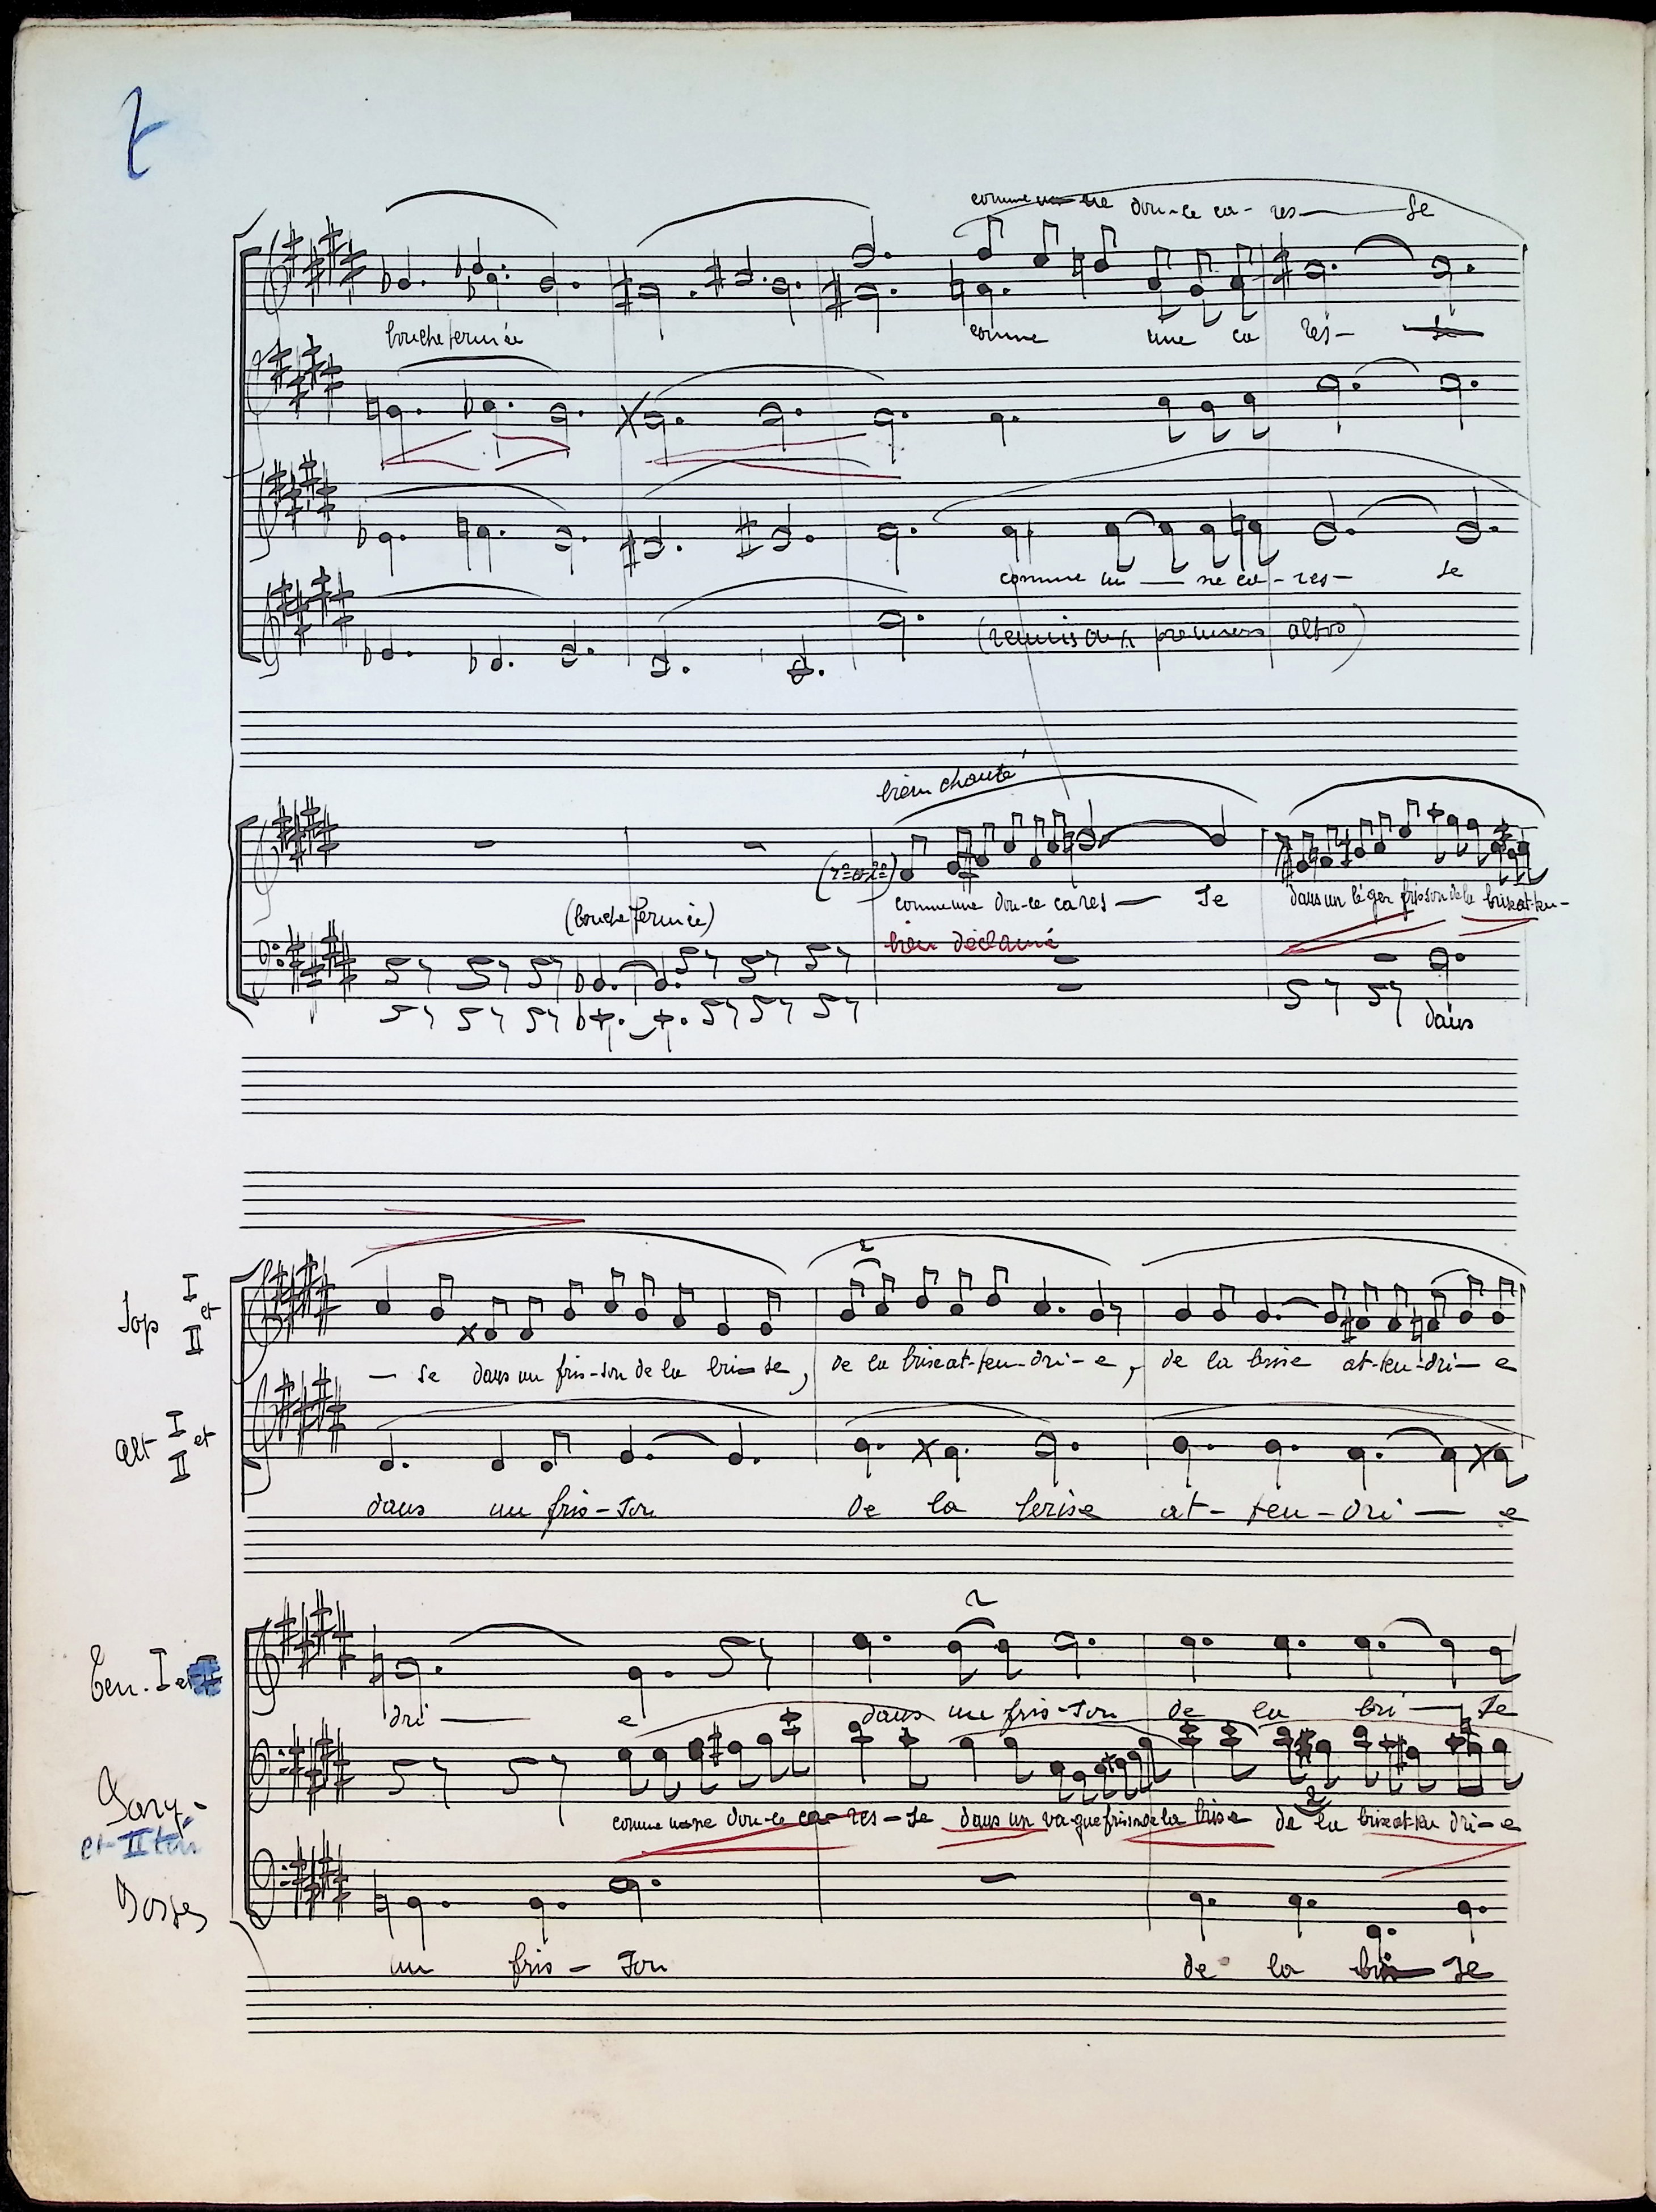 comme u-ne dou-ce ca-res-se
bouche fermée
comme une ca res-se
comme u-ne ca-res-se
(remis aux premiers altos)
bien chanté
(1º et 2º)
comme une dou-ce cares-se dans un léger frisson de la brise at-ten-
(bouche fermée)
bien déclamé
dans
Sop I et II
-se dans un fris-son de la bri-se, de la brise at-ten-dri-e, de la brise at-ten-dri-e
Alt I et II
dans un fris-son de la brise at-ten-dri-e
2
Ten. I et
dri-e dans un fris-son de la bri-se
Bary-
et II ten
comme u-ne dou-ce ca-res-se dans un va-gue frisson de la brise de la brise at-ten dri-e
2
Basses
un fris-son de la bri-se